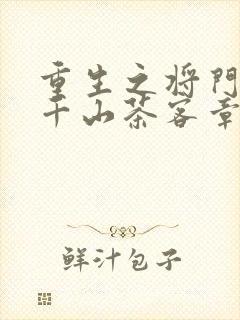 重生之将门
千山茶客章
鲜汁包子